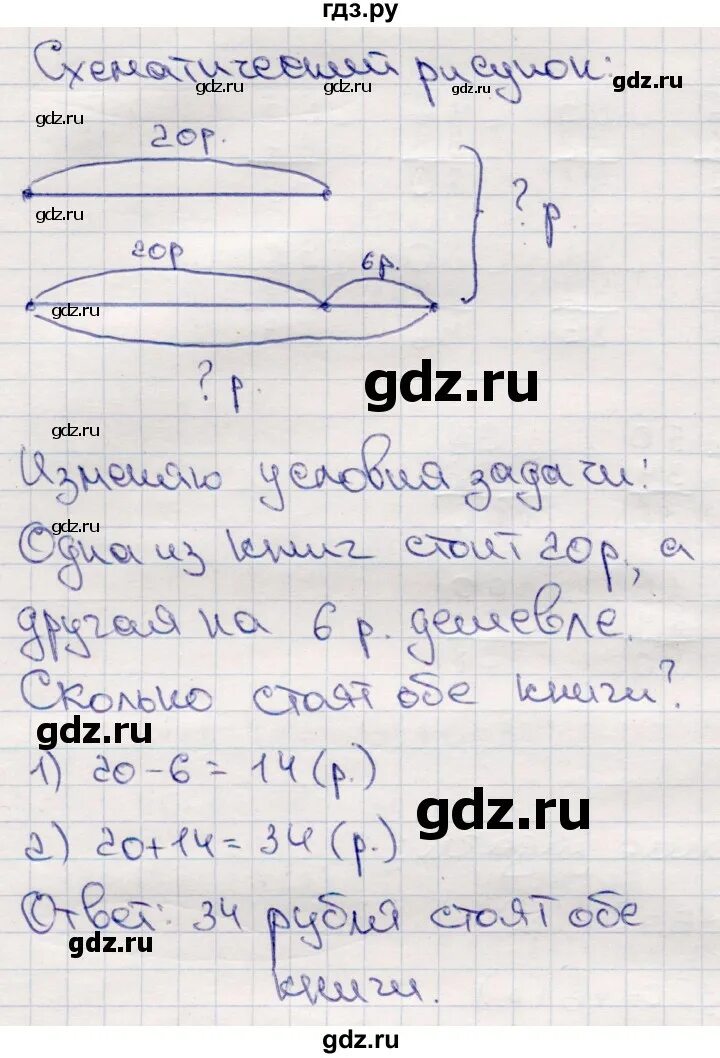 гдз.ру
Схематический рисунок:
gdz.ru gdz.ru gdz.ru gdz.ru
gdz.ru
20р.
gdz.ru
? р.
20р
6р.
gdz.ru
? р.
gdz.ru
gdz.ru
Изменяю условия задачи:
gdz.ru
Одна из книг стоит 20р, а
другая на 6 р. дешевле.
Сколько стоят обе книги?
gdz.ru
1) 20-6=14(р.)
gdz.ru
2) 20+14=34(р.)
Ответ: 34 рубля стоят обе
gdz.ru
книги.
gdz.ru